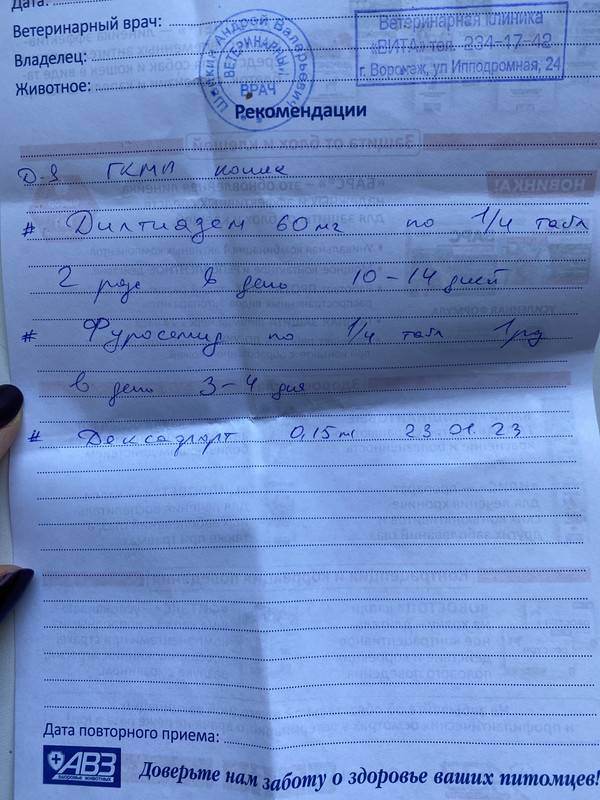 Дата:
Ветеринарный врач:
Владелец:
Животное:
Андрей Валерьевич
ВЕТЕРИНАРНЫЙ
ВРАЧ
Ветеринарная клиника
«ВИТА» тел. 234-17-42
г. Воронеж, ул Ипподромная, 24
Рекомендации
Д-з ГКМП кошек
# Дилтиазем 60 мг по 1/4 табл
2 раза в день 10-14 дней
# Фуросемид по 1/4 табл 1 рд
в день 3-4 дня
# Дексафорт 0,15 мл 23.01.23
Дата повторного приема:
АВЗ
ЗДОРОВЬЕ ЖИВОТНЫХ
Доверьте нам заботу о здоровье ваших питомцев!